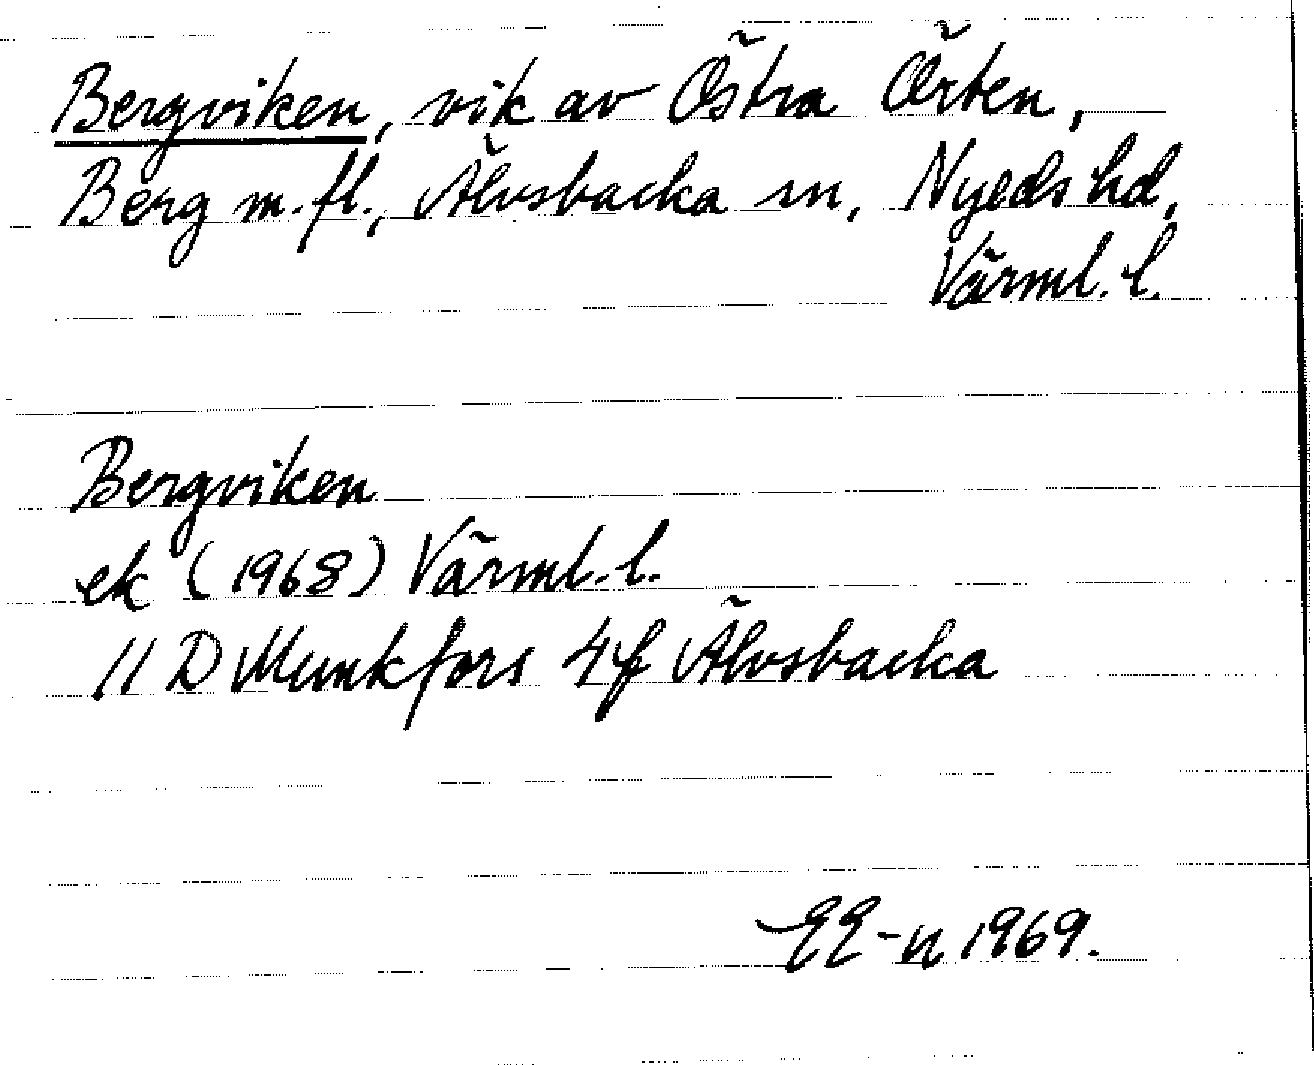 Bergviken, vik av Östra Örten,
Berg m.fl., Älvsbacka sn, Nyeds hd,
Värml. l.
Bergviken
ek (1968) Värml. l.
11 D Munkfors 4f Älvsbacka
EE-n 1969.